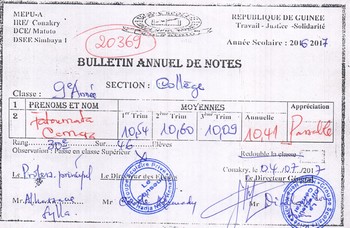 MEPU-A REPUBLIQUE DE GUINEE
IRE/ Conakry Travail - Justice -Solidarité
DCE/ Matoto
DSEE Simbaya I Année Scolaire : 2016 2017
20369
BULLETIN ANNUEL DE NOTES
Classe : 9e Année SECTION : Collège
1 PRENOMS ET NOM MOYENNES Appréciation
1er Trim 2ème Trim 3ème Trim Annuelle
2 Fatoumata Camara 10,64 10,60 10,09 10,41 Passable
Rang 30e Sur 46
Observation : Passe en classe Supérieur Redouble la classe
Conakry, le 04/07/2017
Le Profess. principal Le Directeur des Etudes Le Directeur Général
Sylla